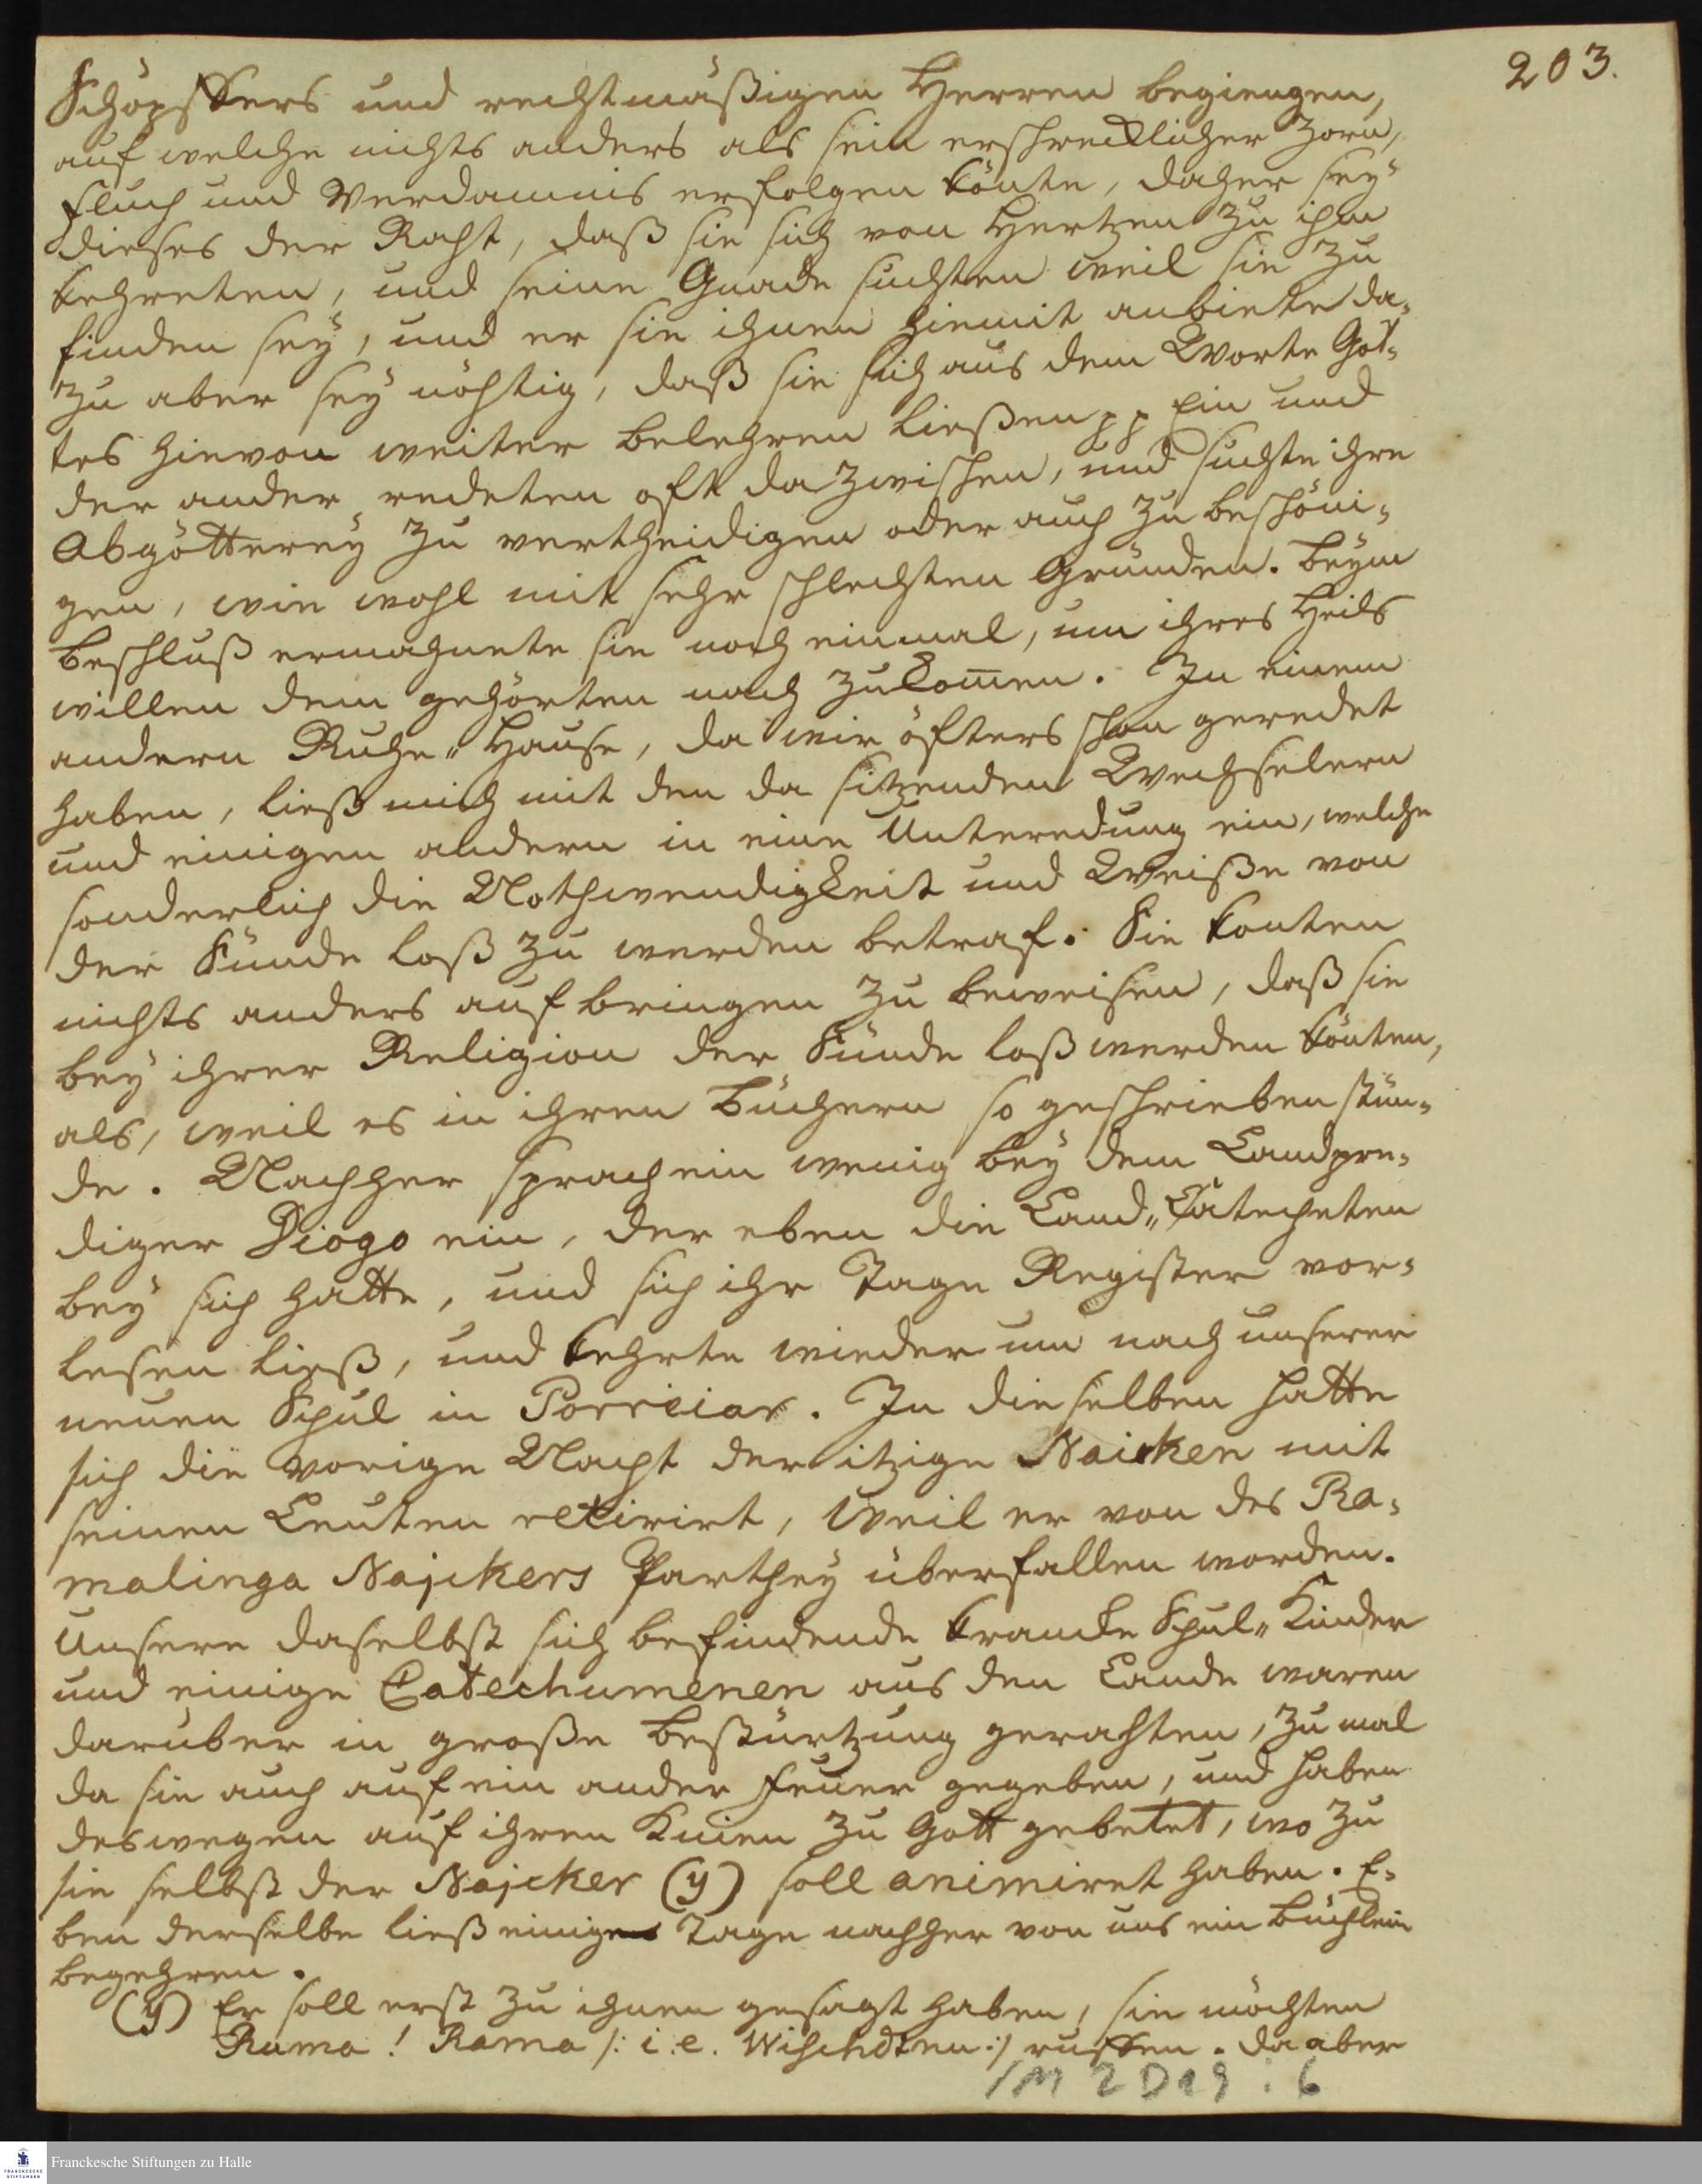 203.
Schöpffers und rechtmäßigen Herren begiengen,
auf welche nichts anders als sein erschrecklicher Zorn,
Fluch und Verdamnis erfolgen könte, daher sey
dieses der Raht, daß sie sich von Hertzen zu ihm
kehreten, und seine Gnade suchten weil sie zu
finden sey, und er sie ihnen hiemit anbiete da-
zu aber sey nöhtig, daß sie sich aus dem Worte Got-
tes hievon weiter belehren ließen pp Ein und
der ander redeten oft dazwischen, und suchte ihre
Abgötterey zu vertheidigen oder auch zu beschöni-
gen, wie wohl mit sehr schlechten Gründen. Beym
Beschluß ermahnete sie noch einmal, um ihres Heils
willen dem gehörten nach zukom̄en. In einem
andern Ruhe-Hause, da wir öfters schon geredet
haben, ließ mich mit den da sitzenden Wechselern
und einigen andern in eine Unteredung ein, welche
sonderlich die Nothwendigkeit und Weiße von
der Sünde loß zu werden betraf. Sie konten
nichts anders aufbringen zu beweisen, daß sie
bey ihrer Religion der Sünde loß werden könten,
als, weil es in ihren Büchern so geschrieben stün-
de. Nachher sprach ein wenig bey dem Landpre-
diger Diogo ein, der eben die Land-Catecheten
bey sich hatte, und sich ihr Tage Register vor-
lesen ließ, und kehrte wieder um nach unserer
neuen Schul in Porreiar. In dieselben hatte
sich die vorige Nacht der itzige Naicken mit
seinen Leuten retirirt, weil er von des Ra-
malinga Najckers Parthey überfallen worden.
Unsere daselbst sich befindende krancke Schul-Kinder
und einige Catechumenen aus den Lande waren
darüber in große Bestürtzung gerahten, zumal
da sie auch auf ein ander Feuer gegeben, und haben
deswegen auf ihren Knien zu Gott gebetet, wo zu
sie selbst der Najcker (y) soll animiret haben. E-
ben derselbe ließ einige Tage nachher von uns ein Büchlein
begehren.
(y) Er soll erst zu ihnen gesagt haben, sie möchten
Rama! Rama /: i.e. Wischdtnu :/ ruffen. Da aber
1M 2 D19 : 6
Franckesche Stiftungen zu Halle